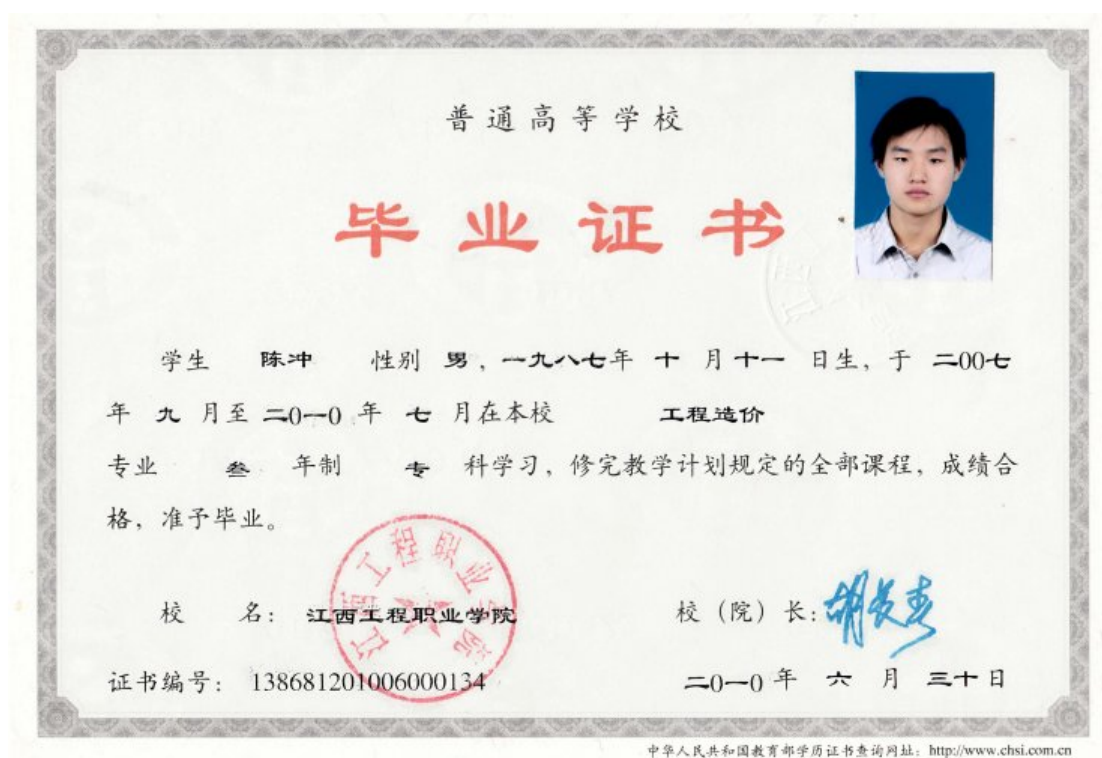 普通高等学校
毕业证书
学生 陈冲 性别 男，一九八七年 十 月 十一 日生，于 二00七
年 九 月至 二0一0 年 七 月在本校 工程造价
专业 叁 年制 专 科学习，修完教学计划规定的全部课程，成绩合
格，准予毕业。
江西工程职业学院
校 名： 江西工程职业学院 校（院）长：胡长青
证书编号： 138681201006000134 二0一0 年 六 月 三十 日
中华人民共和国教育部学历证书查询网址：http://www.chsi.com.cn